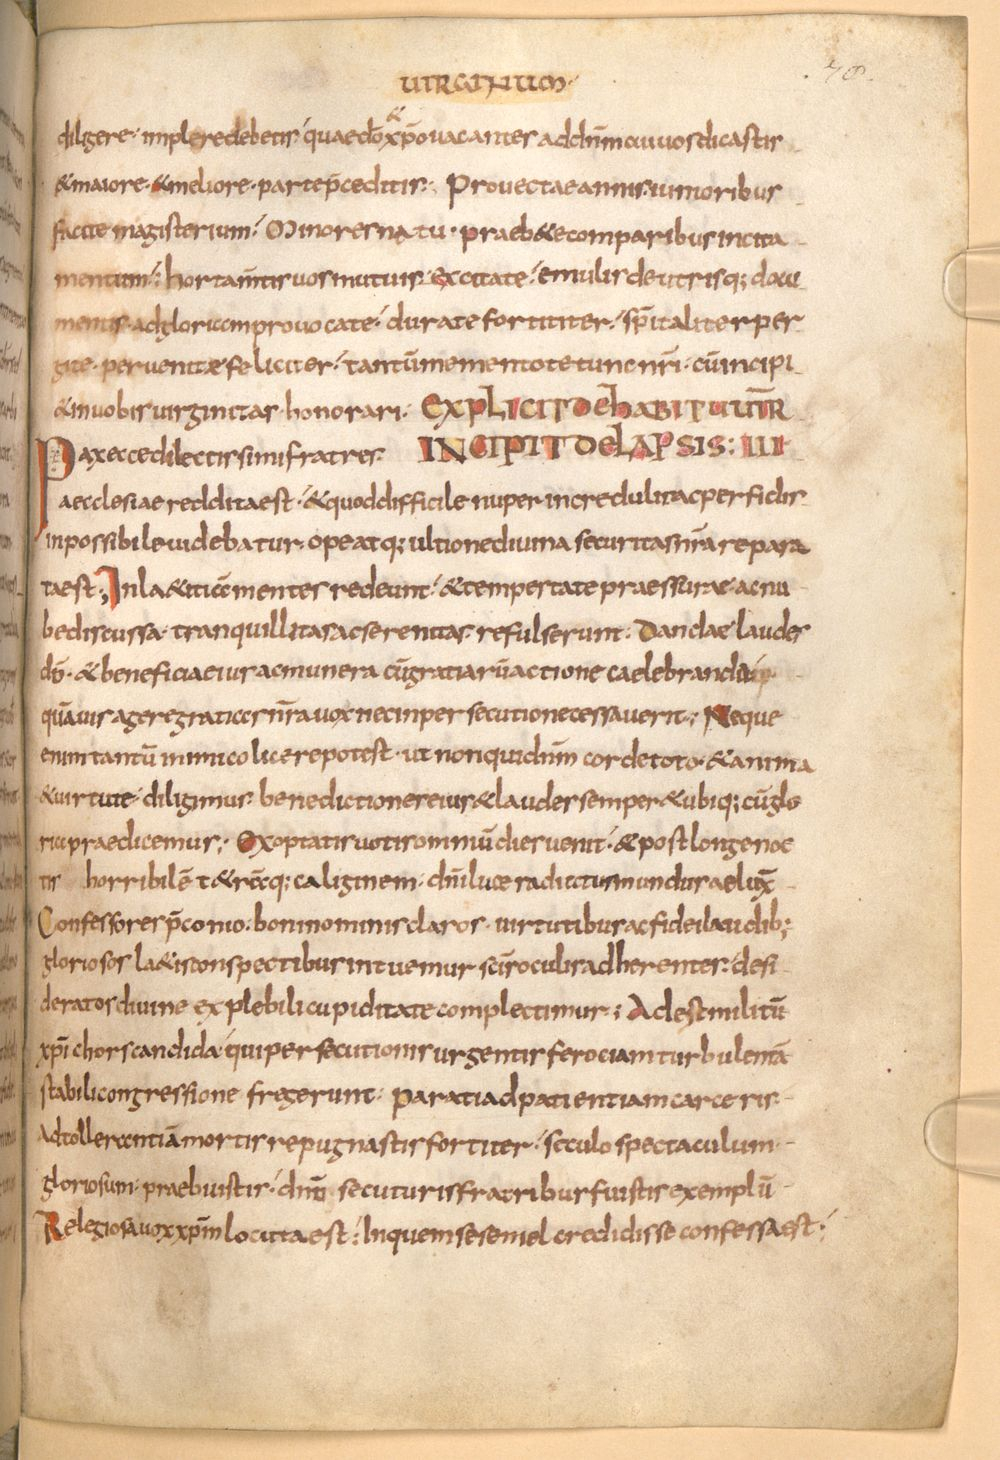 UIRGINUM·
78.
&
diligere· implere debetis· quae do xp̄o uacantes ad dn̄m cui uos dicastis
& maiore· & meliore· parte p̄ceditis· Prouectae annis· iunioribus
facite magisterium· Minores natu· praebete comparibus incita
mentum· hortam̄tis uos mutuis· excitate· emulis deutrisq; docu
mentis· ad gloriam prouocate· durate fortiter· sp̄italiter per
gite· peruenitae feliciter· tantūmementote tunc nr̄i· cū incipi
& in uobis uirginitas· honorari· EXPLICIT DE hABITU UIR̄
Pax ecce dilectissimi fratres· INCIPIT DE LAPSIS: III
aecclesiae reddita est· & quod difficile nuper incredulis ac perfidis
inpossibile uidebatur· ope atq; ultione diuina securitas nr̄a repara
ta est; In laetitiam mentes redeunt· & tempestate praessurae· ac nu
be discussa· tranquillitas ac serenitas· refulserunt· Dandae laudes
dō· & beneficia eius ac munera cū gratiarū actione caelebranda
quāuis agere gratias nr̄a uox nec in persecutione cessauerit; Neque
enim tantū inimico licere potest· ut non qui dn̄m corde toto· & anima
& uirtute· diligimus· benedictiones eius & laudes semper & ubiq; cū glo
ria praedicemus; Exoptatis uotis omniū dies uenit· & post longe noc
tis horribilē tetrāq; caliginem· dn̄i luce radiatus mundus aeluxͫ
Confessores p̄conio· boni nominis claros· uirtutibus ac fidei laudib;
gloriosos laetis conspectibus intuemur sc̄is osculis adherentes: desi
deratos diuine explebili cupiditate complectimur; Adest militū
xp̄i chors candida· qui persecutionis urgentis ferociam turbulentā
stabili congressione fregerunt· parati ad patientiam carceris·
ad tollerantiā mortis repugnastis fortiter· saeculo spectaculum·
gloriosum· praebuistis· dn̄o secuturis fratribus fuistis exemplū
Relegiosa uox xp̄m locuta est; In quem se semel credidisse confessa est;